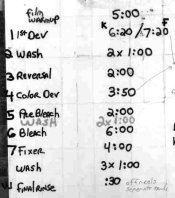 film warmup 5:00
K F
1 1st Dev 6:20 / 7:20
2 WASH 2x 1:00
3 Reversal 2:00
4 Color Dev 3:50
5 Pre Bleach 2:00
WASH 2x 1:00
6 Bleach 6:00
7 Fixer 4:00
WASH 3x 1:00
Final Rinse :30 off reels
separate tank